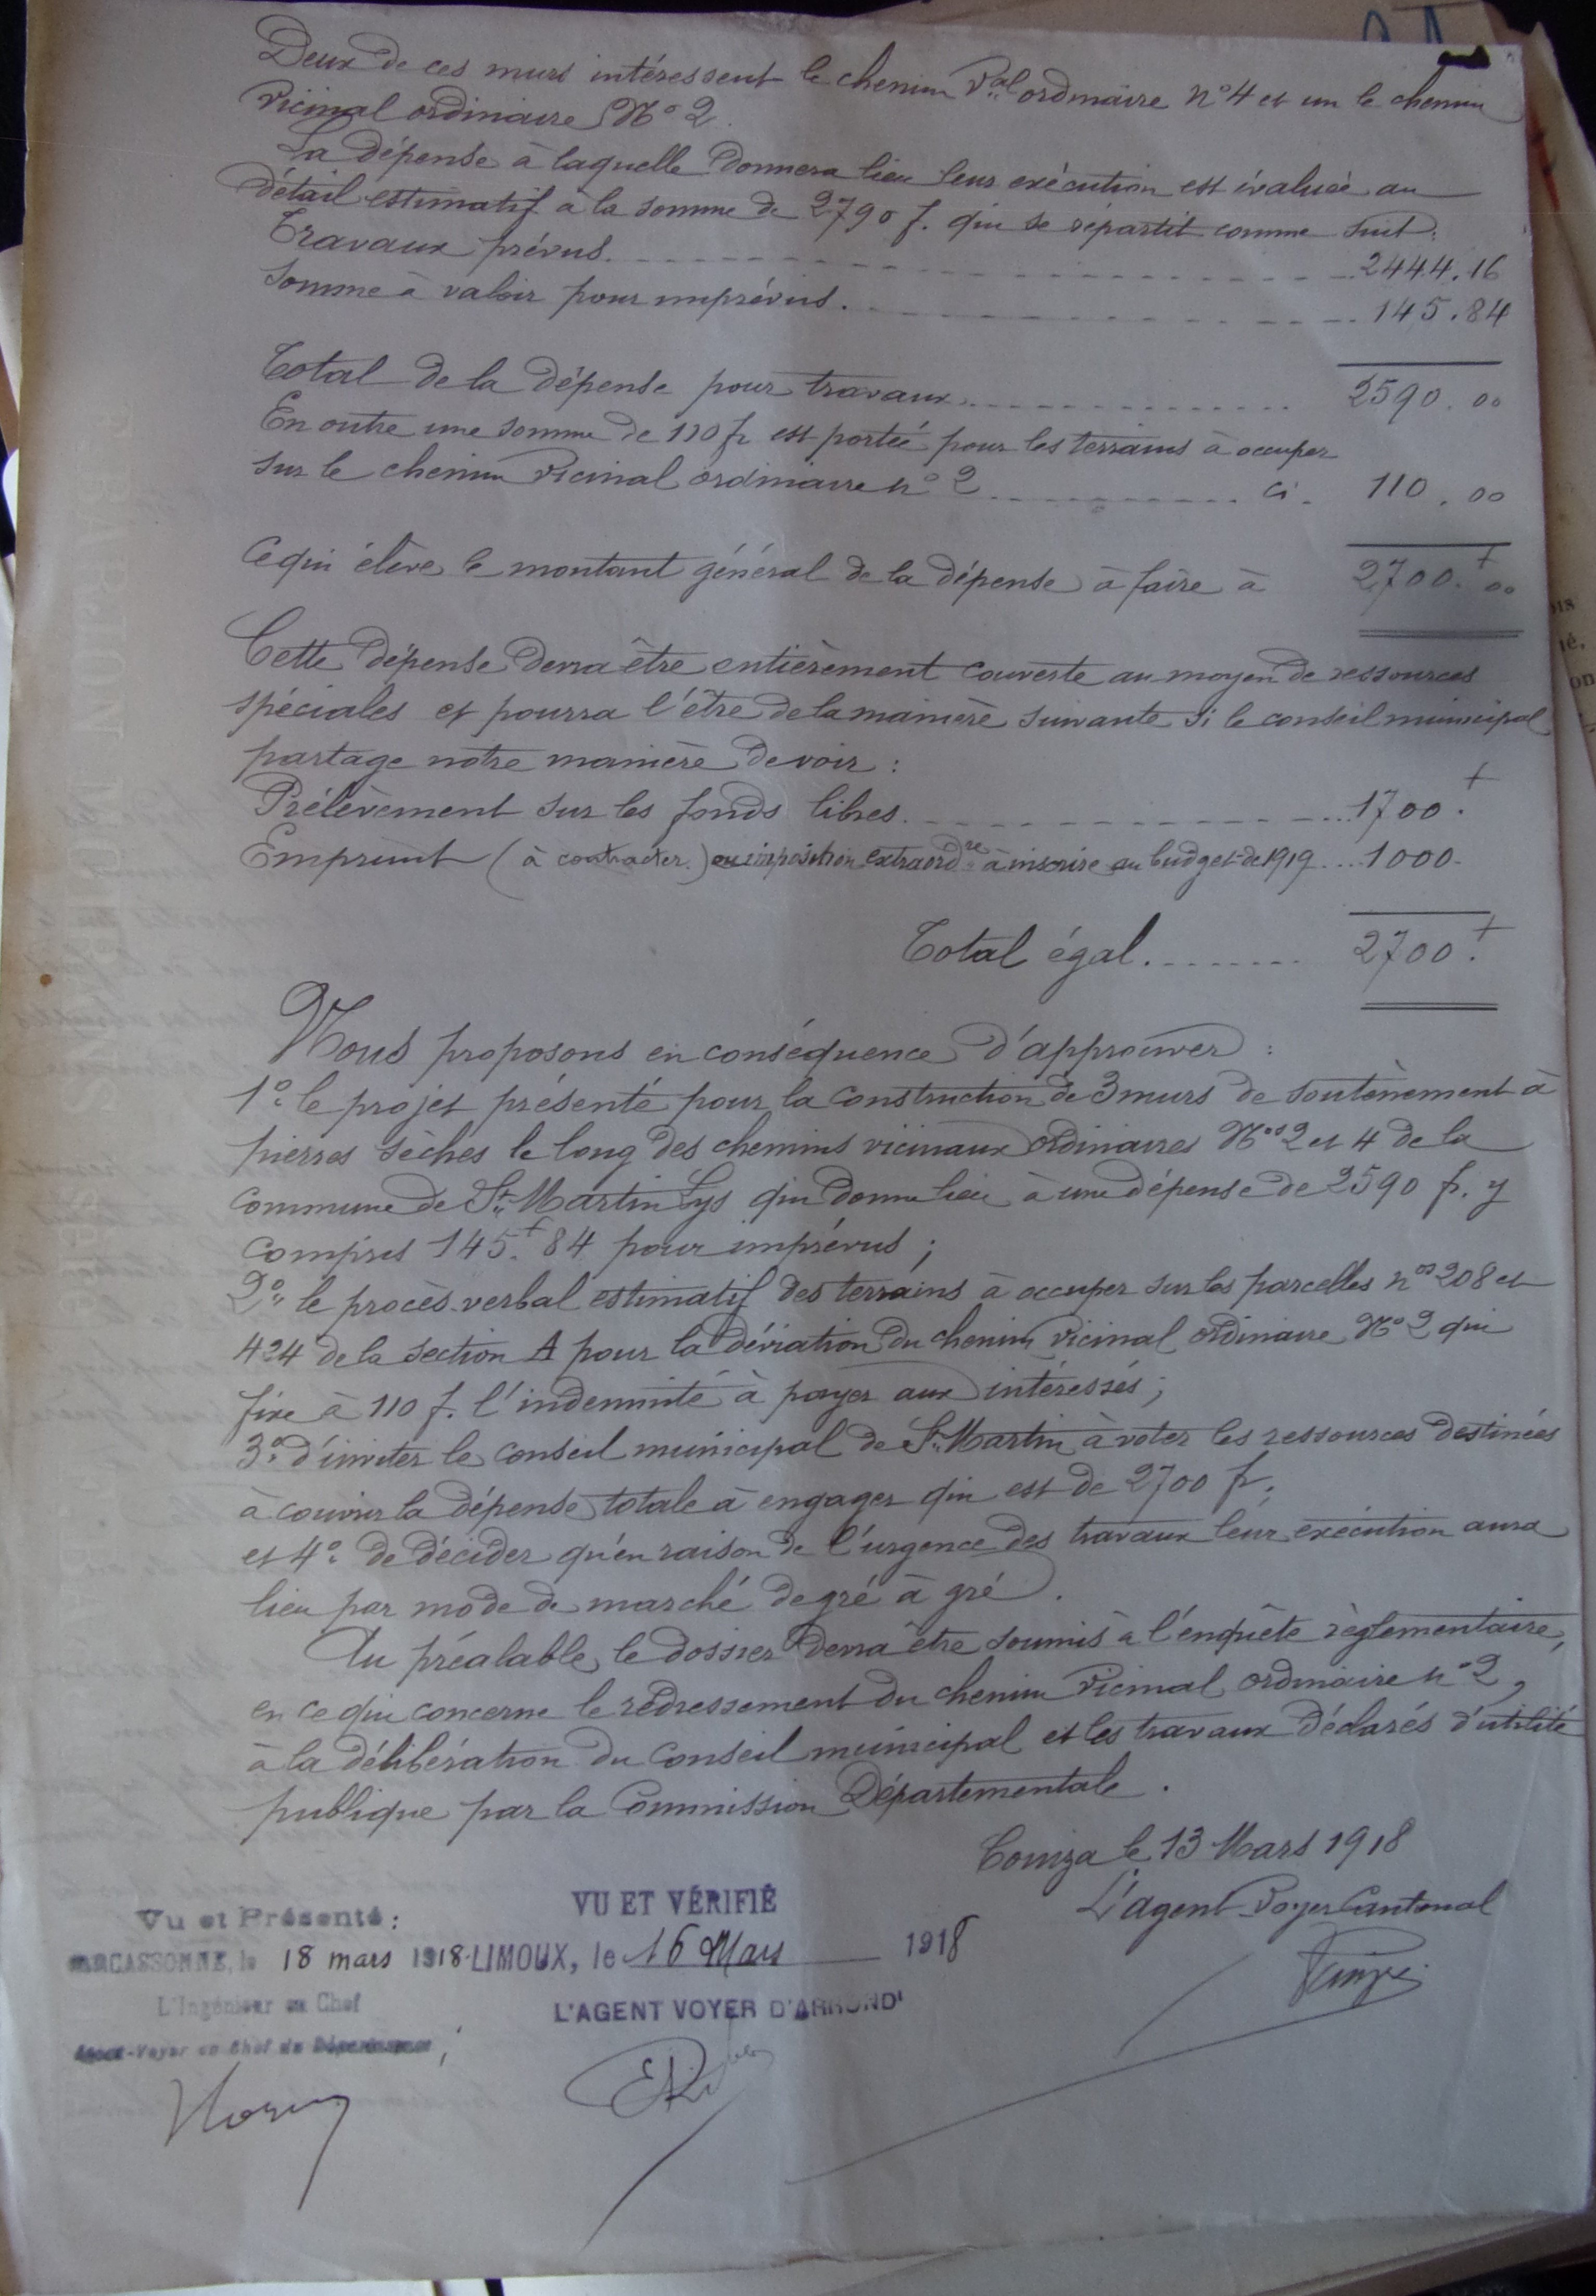 Deux de ces murs intéressent le chemin Val ordinaire n° 4 et un le chemin
Vicinal ordinaire N° 2.
La dépense à laquelle donnera lieu leur exécution est évaluée au
détail estimatif à la somme de 2790 f. qui se répartit comme suit:
Travaux prévus. 2444.16
Somme à valoir pour imprévus. 145.84
Total de la dépense pour travaux 2590.00
En outre une somme de 110 fr est portée pour les terrains à occuper
sur le chemin Vicinal ordinaire n° 2 ci. 110.00
Ce qui élève le montant général de la dépense à faire à 2700.f 00
Cette dépense devra être entièrement couverte au moyen de ressources
spéciales et pourra l'être de la manière suivante si le conseil municipal
partage notre manière de voir :
Prélèvement sur les fonds libres. 1700.f
Emprunt (à contracter.) ou imposition extraordre à inscrire au budget de 1919 1000.
Total égal. 2700.f
Nous proposons en conséquence d'approuver :
1° le projet présenté pour la construction de 3 murs de soutènement à
pierres sèches le long des chemins vicinaux ordinaires Nos 2 et 4 de la
commune de St Martin Lys qui donne lieu à une dépense de 2590 f. y
compris 145.f 84 pour imprévus ;
2° le procès-verbal estimatif des terrains à occuper sur les parcelles nos 208 et
424 de la section A pour la déviation du chemin vicinal ordinaire N° 2 qui
fixe à 110 f. l'indemnité à payer aux intéressés ;
3° d'inviter le conseil municipal de St Martin à voter les ressources destinées
à couvrir la dépense totale à engager qui est de 2700 fr.
et 4° de décider qu'en raison de l'urgence des travaux leur exécution aura
lieu par mode de marché de gré à gré.
Au préalable, le dossier devra être soumis à l'enquête règlementaire,
en ce qui concerne le redressement du chemin Vicinal ordinaire n° 2,
à la délibération du Conseil municipal et les travaux déclarés d'utilité
publique par la Commission Départementale.
Couiza le 13 Mars 1918
L'agent Voyer Cantonal
VU ET VÉRIFIÉ
LIMOUX, le 16 Mars 1918
L'AGENT VOYER D'ARRONDt
Vu et Présenté :
CARCASSONNE, le 18 mars 1918
L'Ingénieur en Chef
Agent-Voyer en Chef du Département,